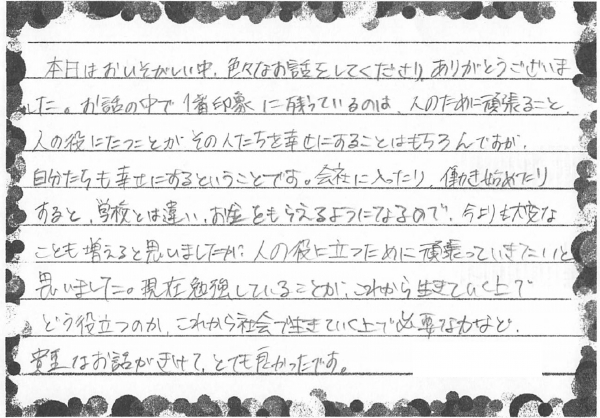 本日はおいそがしい中、色々なお話をしてくださり、ありがとうございま
した。お話の中で1番印象に残っているのは、人のために頑張ること、
人の役にたつことがその人たちを幸せにすることはもちろんですが、
自分たちも幸せにするということです。会社に入ったり、働き始めたり
すると、学校とは違い、お金をもらえるようになるので、今よりも大変な
ことも増えると思いましたが、人の役に立つために頑張っていきたいと
思いました。現在勉強していることが、これから生きていく上で
どう役立つのか、これから社会で生きていく上で必要な力など、
貴重なお話がきけて、とても良かったです。